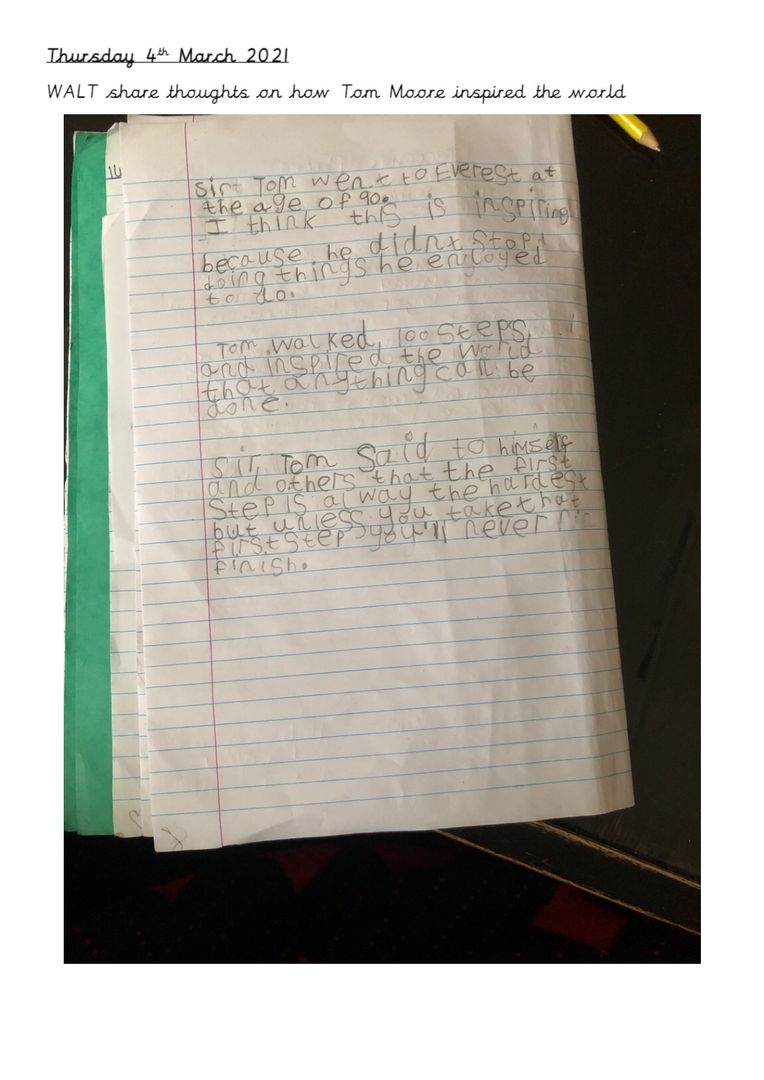 Thursday 4th March 2021
WALT share thoughts on how Tom Moore inspired the world
Sir Tom went to Everest at
the age of 90.
I think this is inspiring
because he didnt stop
doing things he enjoyed
to do.
Tom walked 100 steps
and inspired the world
that anything can be
done.
Sir Tom Said to himself
and others that the first
Step is alway the hardest
but unless you take that
first step you'll never
finish.